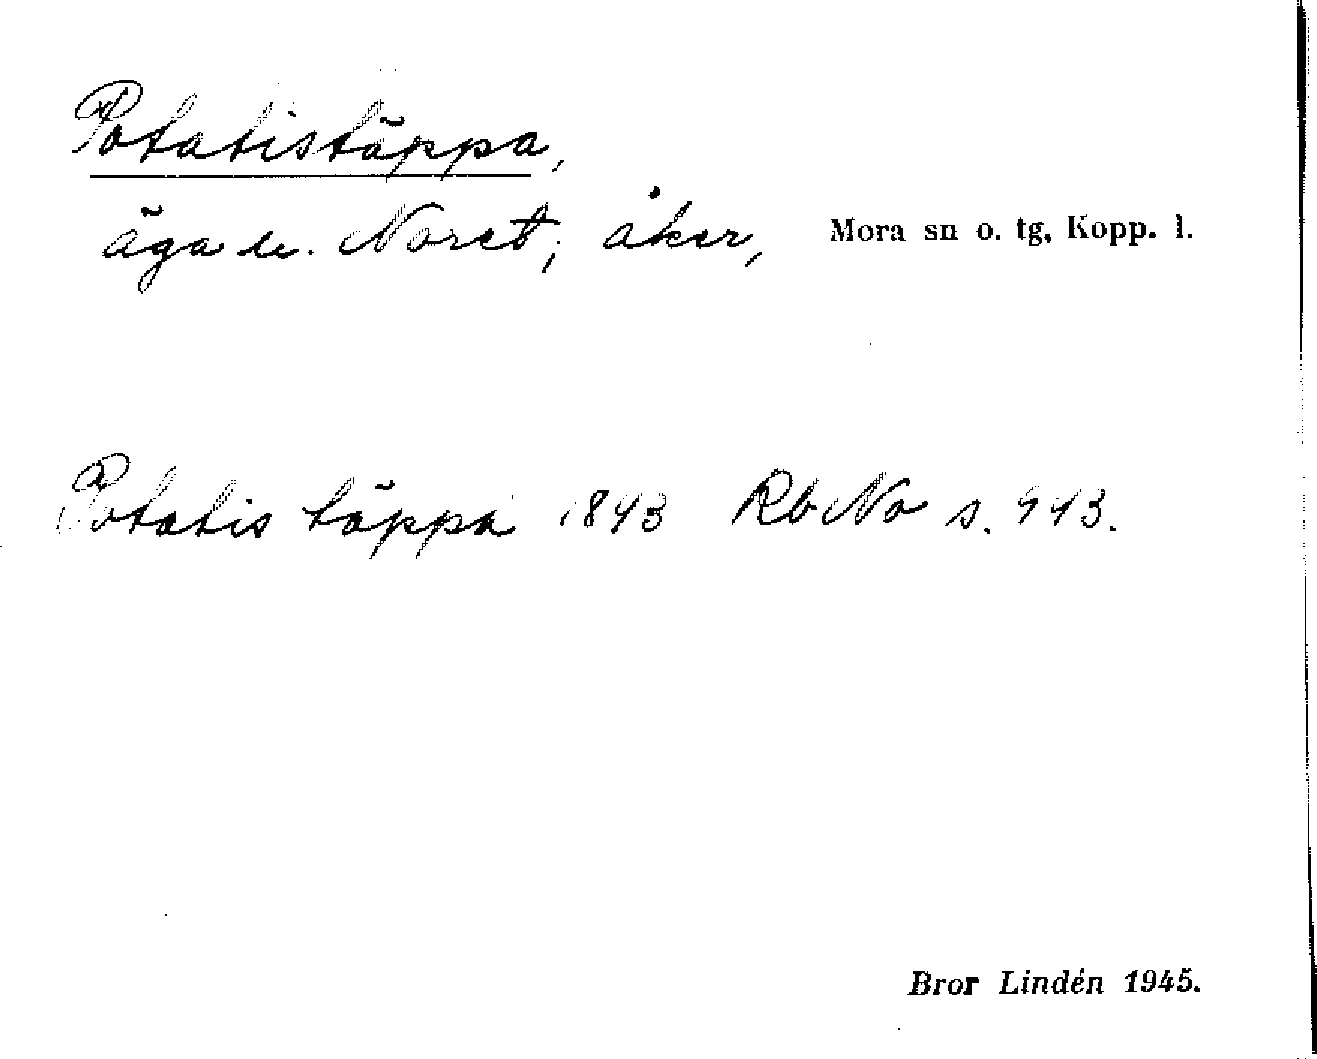 Potatistäppa,
äga u. Noret; åker, Mora sn o. tg, Kopp. l.
Potatis täppa 1843 Rb No s. 943.
Bror Lindén 1945.